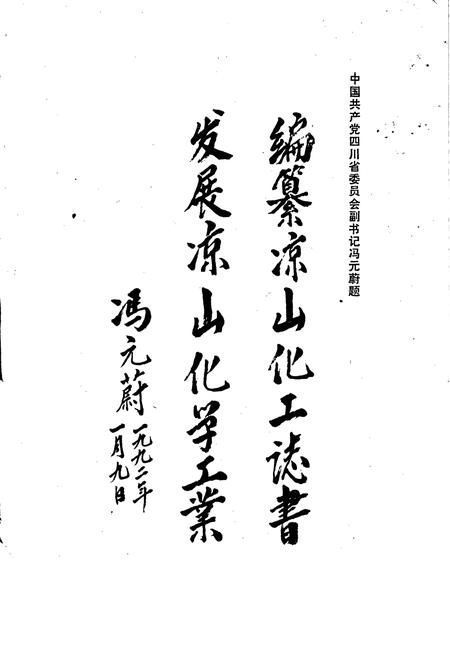 中国共产党四川省委员会副书记冯元蔚题
编纂凉山化工誌書
发展凉山化学工業
冯元蔚
一九九二年
一月九日